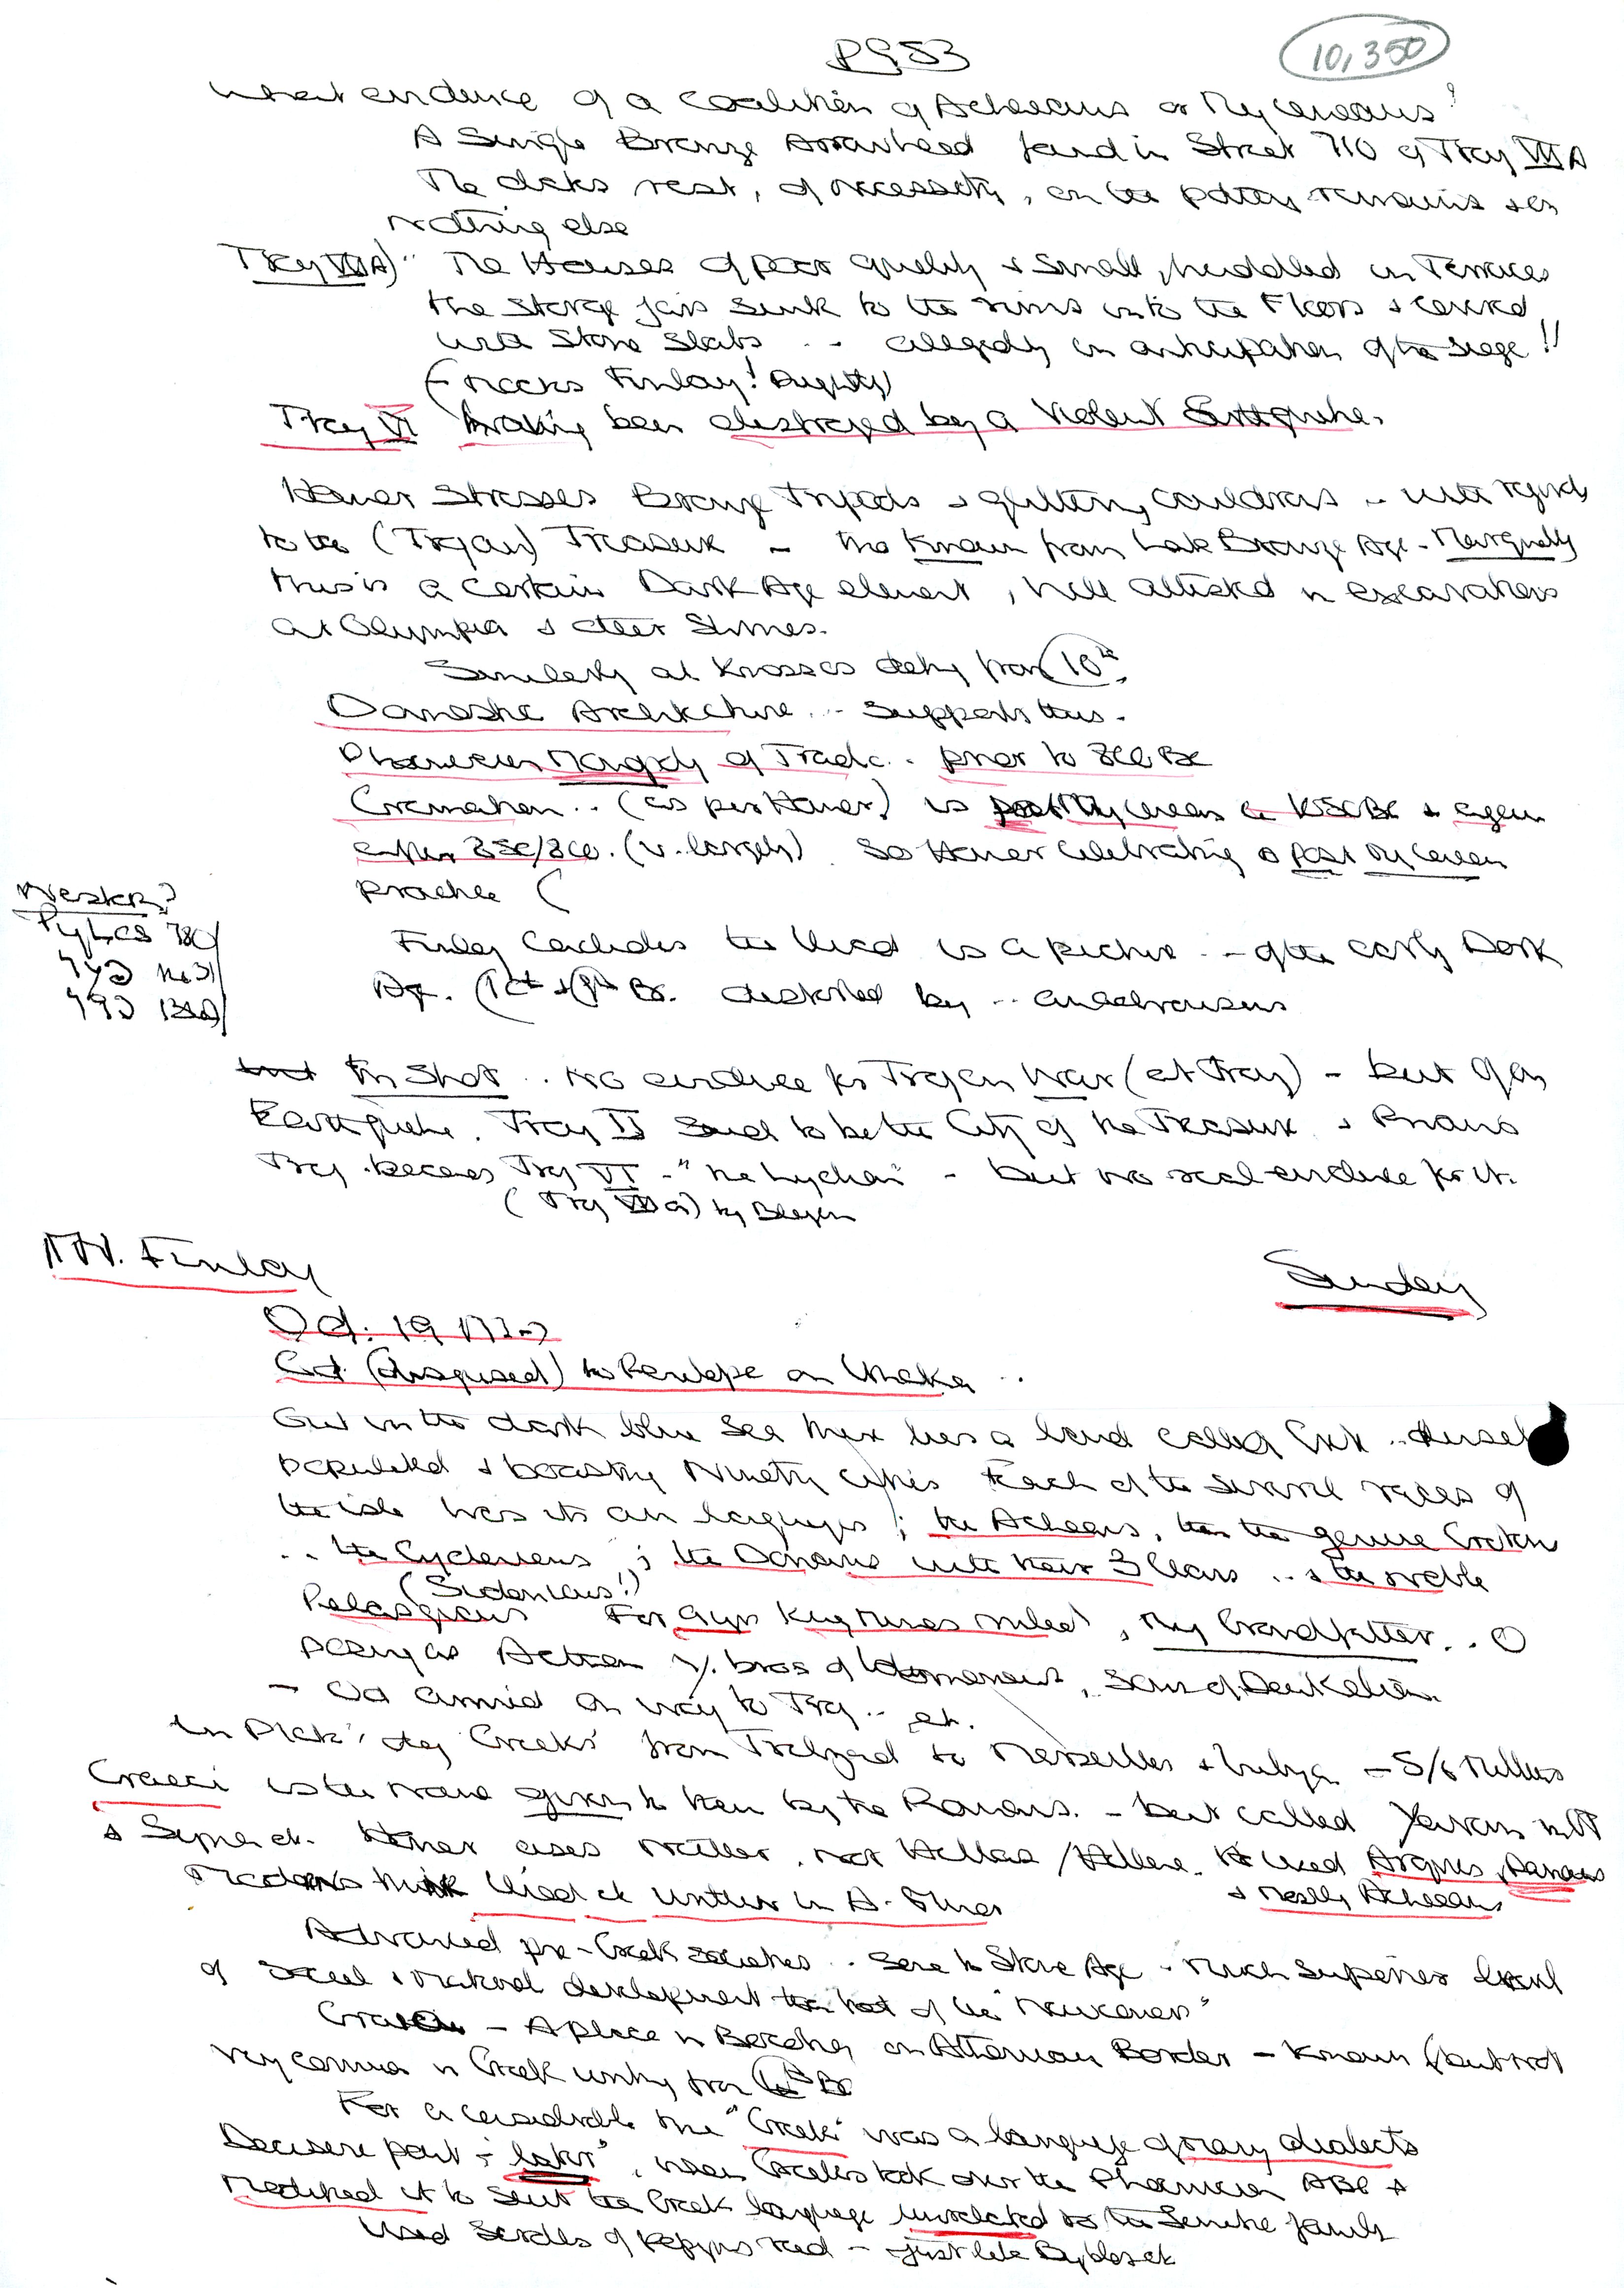 PG53
10,350
What evidence of a coalition of Achaeans or Mycenaeans?
A Single Bronze Arrowhead found in Street 710 of Troy VIIA
The dates rest, of necessity, on the pottery remains & on
nothing else
Troy VIIA) "The Houses of poor quality & small, huddled in Terraces
the storage jars sunk to the rims into the Floors & covered
with Stone Slabs .. allegedly in anticipation of the siege!!
( Finlay! Rightly)
Troy VI having been destroyed by a violent Earthquake.
Homer Stresses Bronze Tripods & glittering cauldrons .. with regards
to the (Trojan) Treasure - tho known from Late Bronze Age -
this is a certain Dark Age element, well attested in excavations
at Olympia & other Shrines.
Similarly at Knossos dating from 10th.
Domestic Architecture .. supports this.
Phoenician Monopoly of Trade .. prior to 800 BC
Cremation .. (as per Homer) is post Mycenean 1050 BC & again
850/800. (v. largely). So Homer celebrating a post Mycenean
practice (
Nestor?
Pylos
Finlay concludes the Iliad is a picture .. of the early Dark
Age. (10th & 9th BC. distorted by .. anachronisms
In Short .. no evidence for Trojan War (at Troy) - but of an
Earthquake. Troy II said to be the City of the Treasure & Priams
Troy becomes Troy VI - - but no real evidence for it.
(Troy VIIa) by Blegen
M. Finlay
Sunday
Od. 19 172-7
Od. (disguised) to Penelope on Ithaka ..
Out in the dark blue sea there lies a land called Crete .. densely
populated & boasting Ninety cities Each of the several races of
the isle has its own language; the Achaeans, then the genuine Cretans
.. the Cydonians; the Dorians with their 3 Clans .. & the noble
(Sidonians!)
Pelasgians For gives King Minos ruled, my Grandfather .. O
posing as Aethon y. bros of Idomeneus, Sons of Deukalion.
- Od arrived on way to Troy .. etc.
In Plato's day 'Greeks' from Trebizond to Marseilles & Libya - 5/6 Millions
Graeci is the name given to them by the Romans. - but called Yavan in OT
& Syria etc. Homer uses neither, not Hellas / Hellene. He used Argives, Danaans
& mostly Achaeans
Moderns think Iliad etc written in A. Minor
Advanced pre-Greek societies .. some to Stone Age - much superior level
of social & material development than that of the "Newcomers"
Graia - A place in Boeotia on Athenian Border - known but not
very common in Greek writing from BC
For a considerable time "Greek" was a language of many dialects
Decisive point - "later", when Greeks took over the Phoenician ABC &
modified it to suit the Greek language unrelated to the Semitic family
Used Scrolls of Papyrus reed - just like Byblos etc